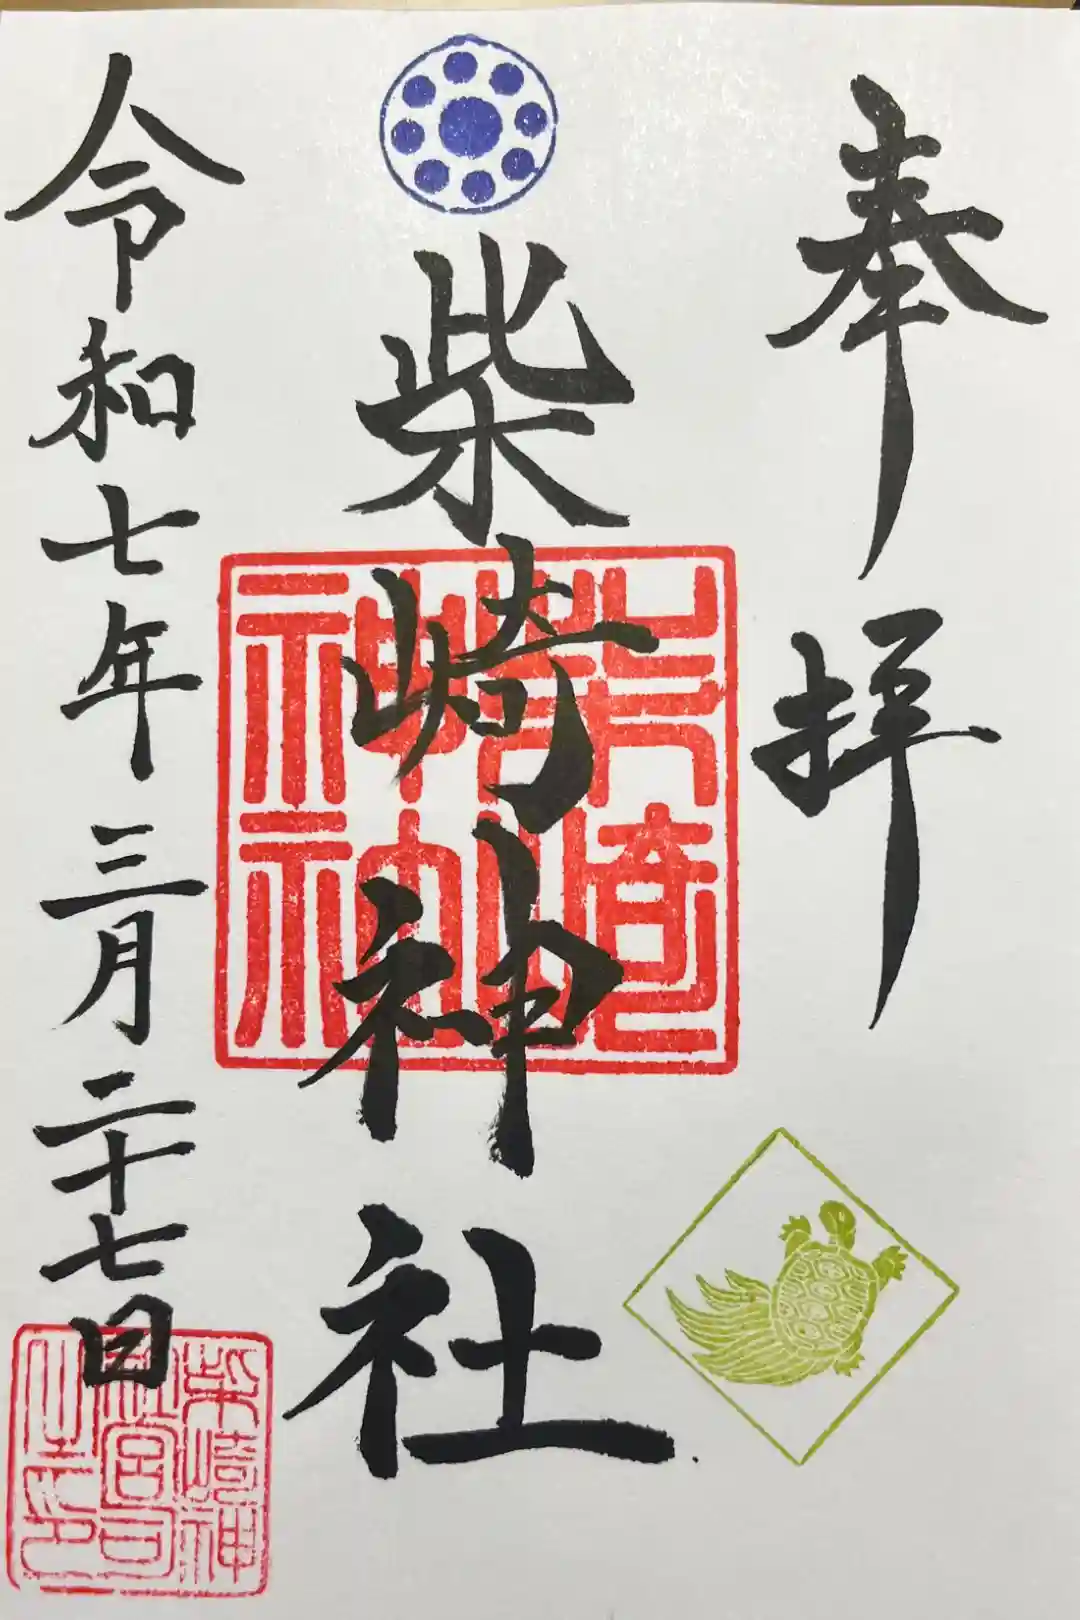 奉拝
柴崎神社
柴崎神社
令和七年三月二十七日
柴崎神社宮司之印